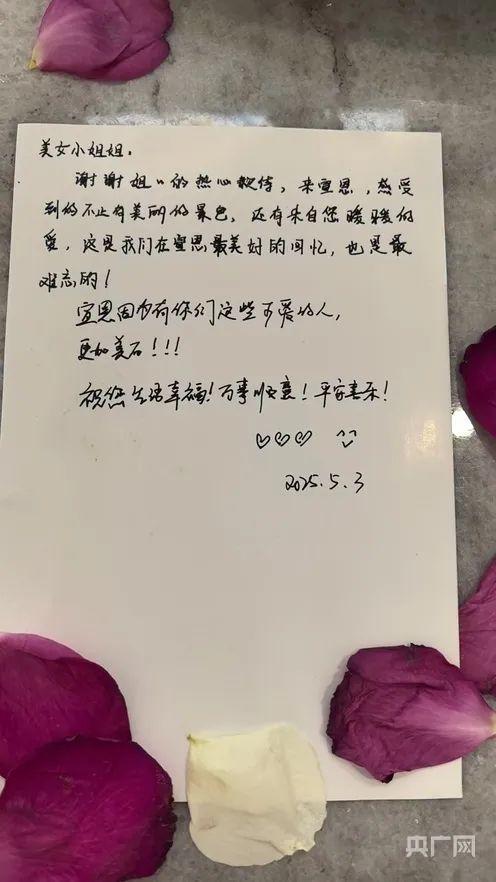 美女小姐姐.
谢谢姐〃的热心款待, 来宣恩, 感受
到的不止有美丽的景色, 还有来自您暖暖的
爱, 这是我们在宣恩最美好的回忆, 也是最
难忘的!
宣恩因为有你们这些可爱的人,
更加美丽!!!
祝您生活幸福! 万事顺意! 平安喜乐!
♡♡♡ ^^
2025.5.3
央广网